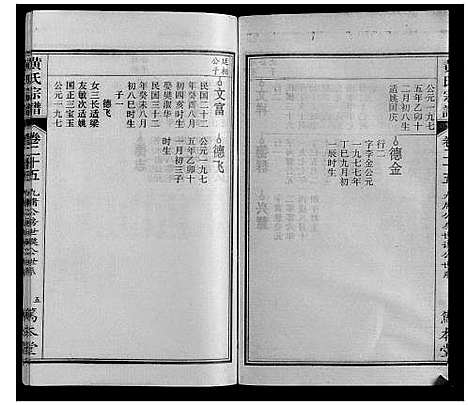 黄氏宗谱
卷二十五
五
笃本堂
廷相
公子
文富
民国二十二
年癸酉八月
初四亥时生
娶樊淑华
年癸未八月
初八时生
子一
德飞
女三长适梁
友敏次适戴
国正三宝玉
公元一九七
德飞
公元一九七
五年乙卯十
一月初三子
时生
公元一九七
五年乙卯十
二月初八生
适姚国庆
德金
行二
字字金公元
一九七七年
丁巳九月初
一辰时生